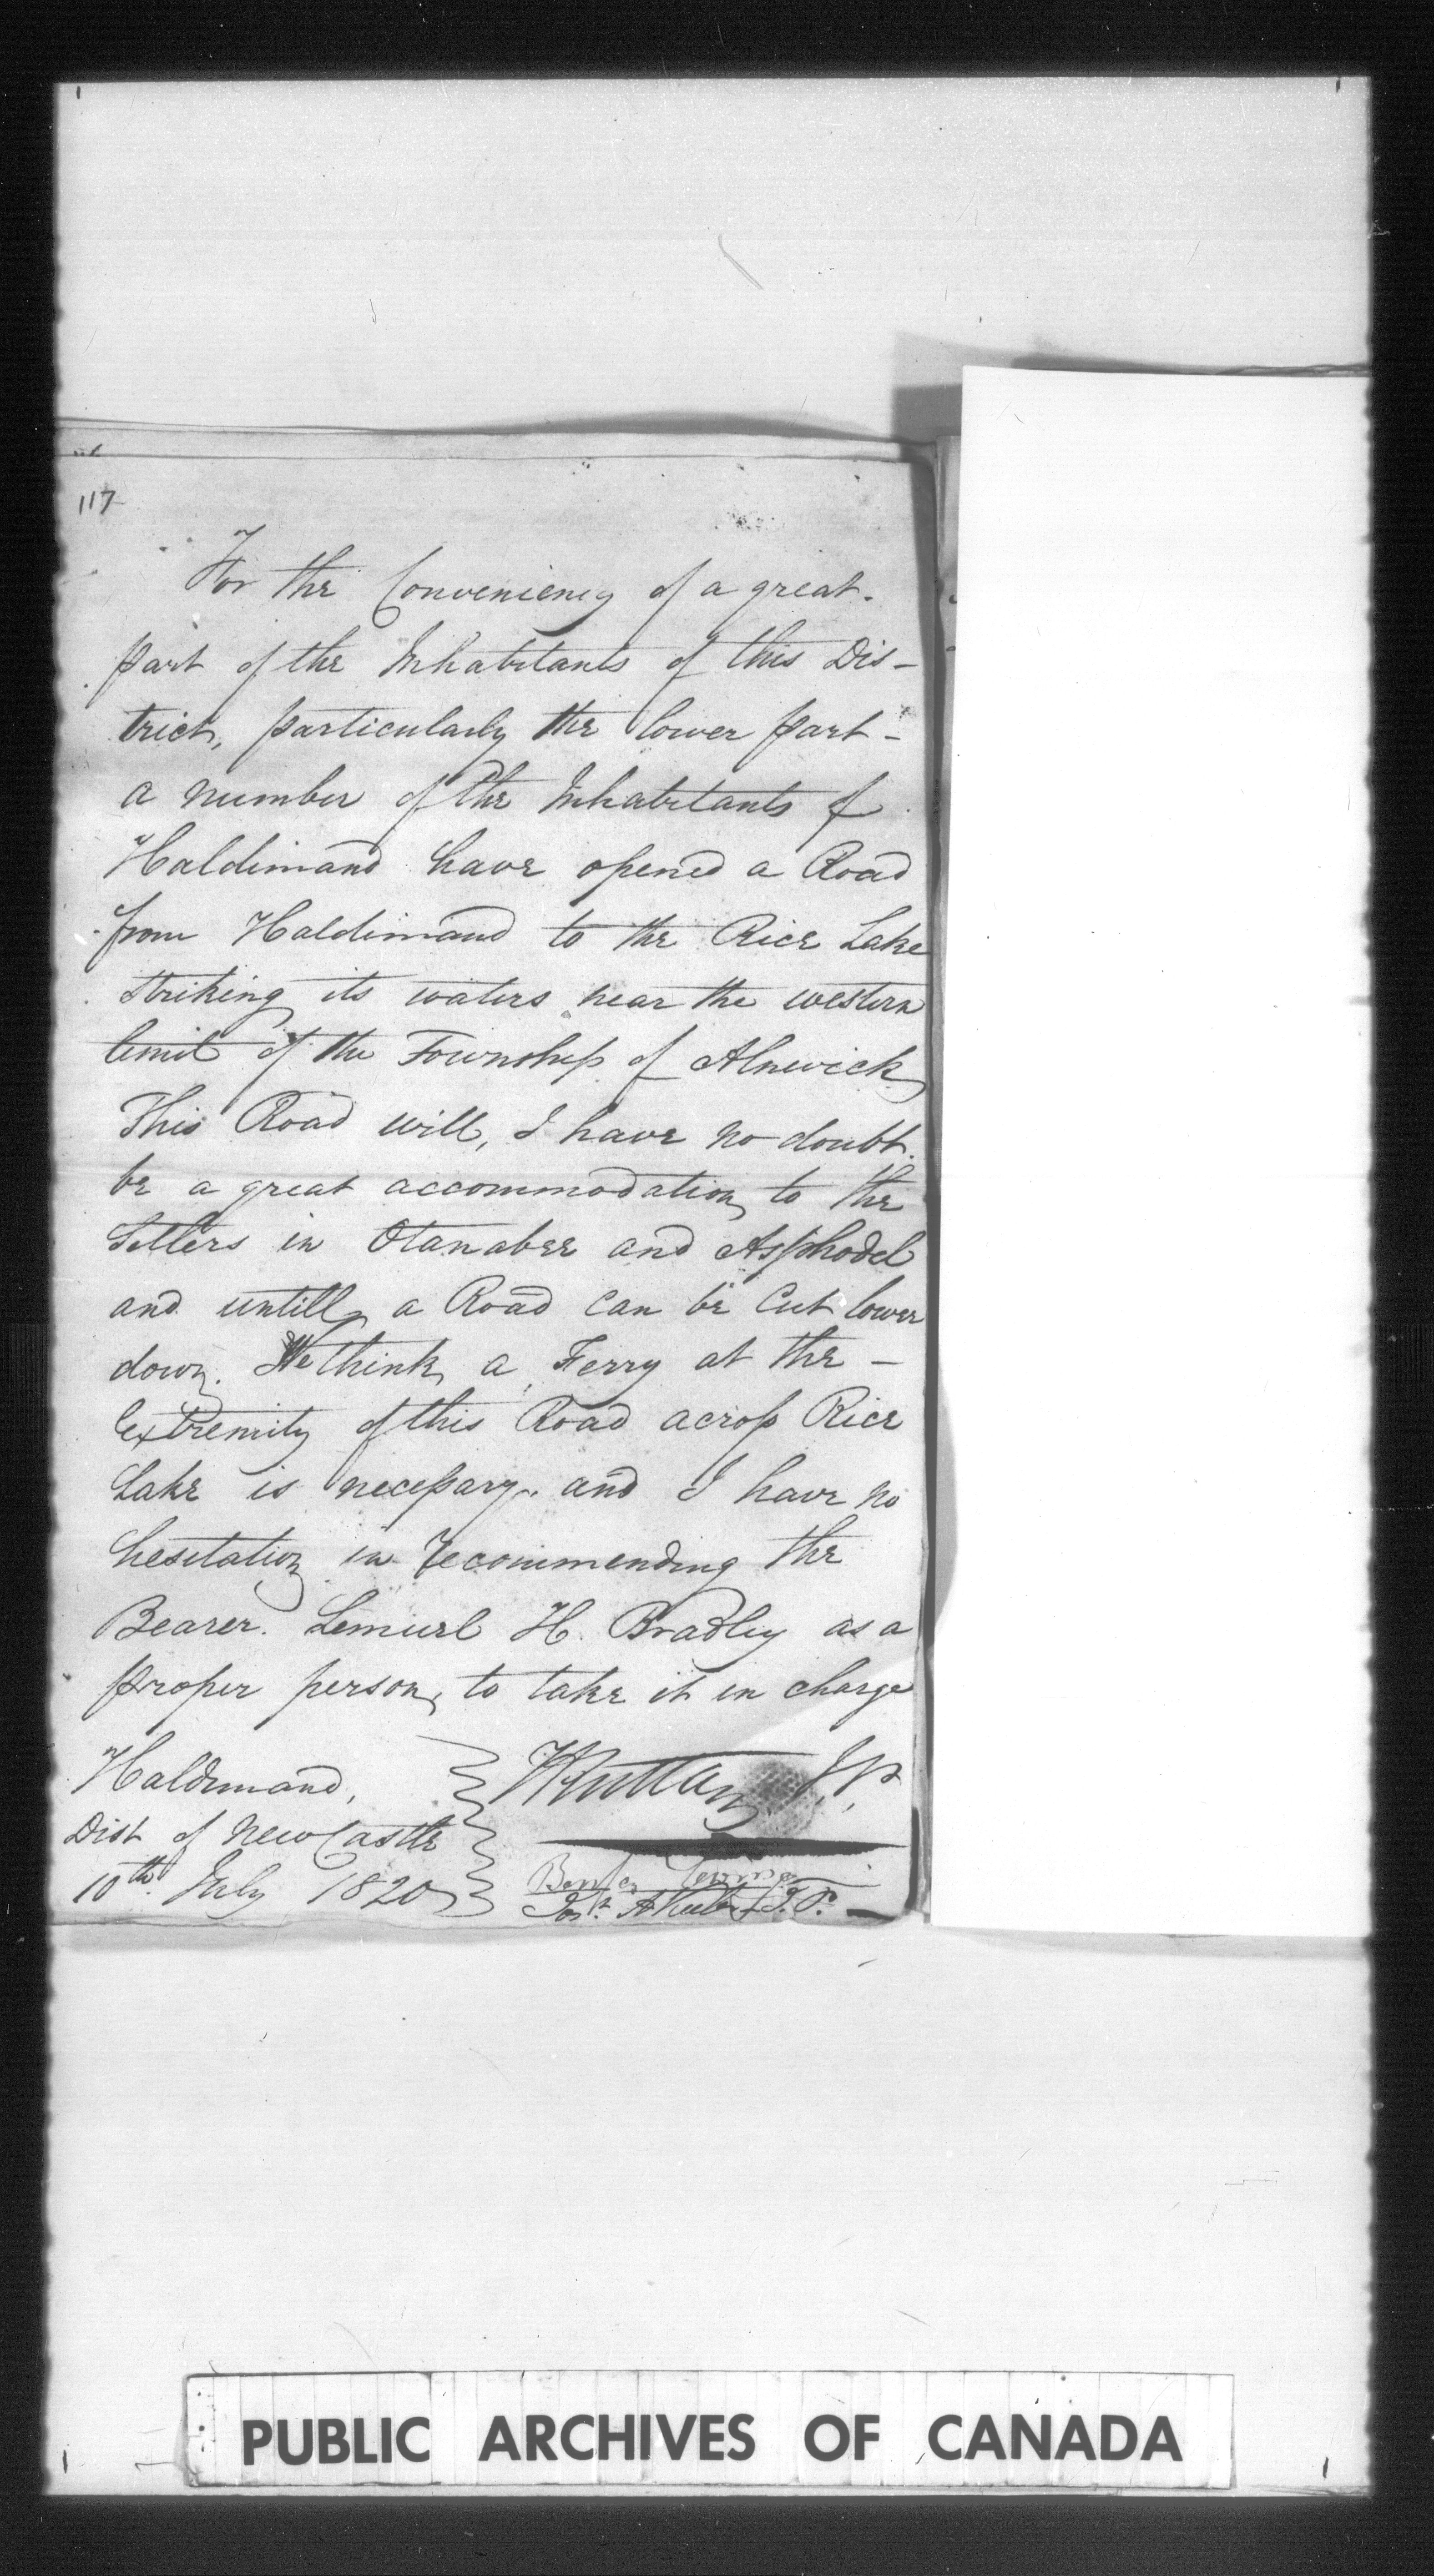 117
For the Conveniency of a great
part of the Inhabitants of this Dis-
trict, particularly the lower part -
a number of the Inhabitants of
Haldimand have opened a Road
from Haldimand to the Rice Lake
striking its waters near the western
limit of the Township of Alnwick
This Road will, I have no doubt.
be a great accommodation to the
Setlers in Otanabee and Asphodel
and untill a Road can be Cut lower
down. We think a Ferry at the -
extremity of this Road across Rice
Lake is necessary. and I have no
hesitation in recommending the
Bearer. Lemuel H. Bradley as a
proper person, to take it in charge
Haldimand,
Dist of NewCastle
10th July 1820
HRuttan J.P.
Jos. A Keeler J.P.
PUBLIC ARCHIVES OF CANADA